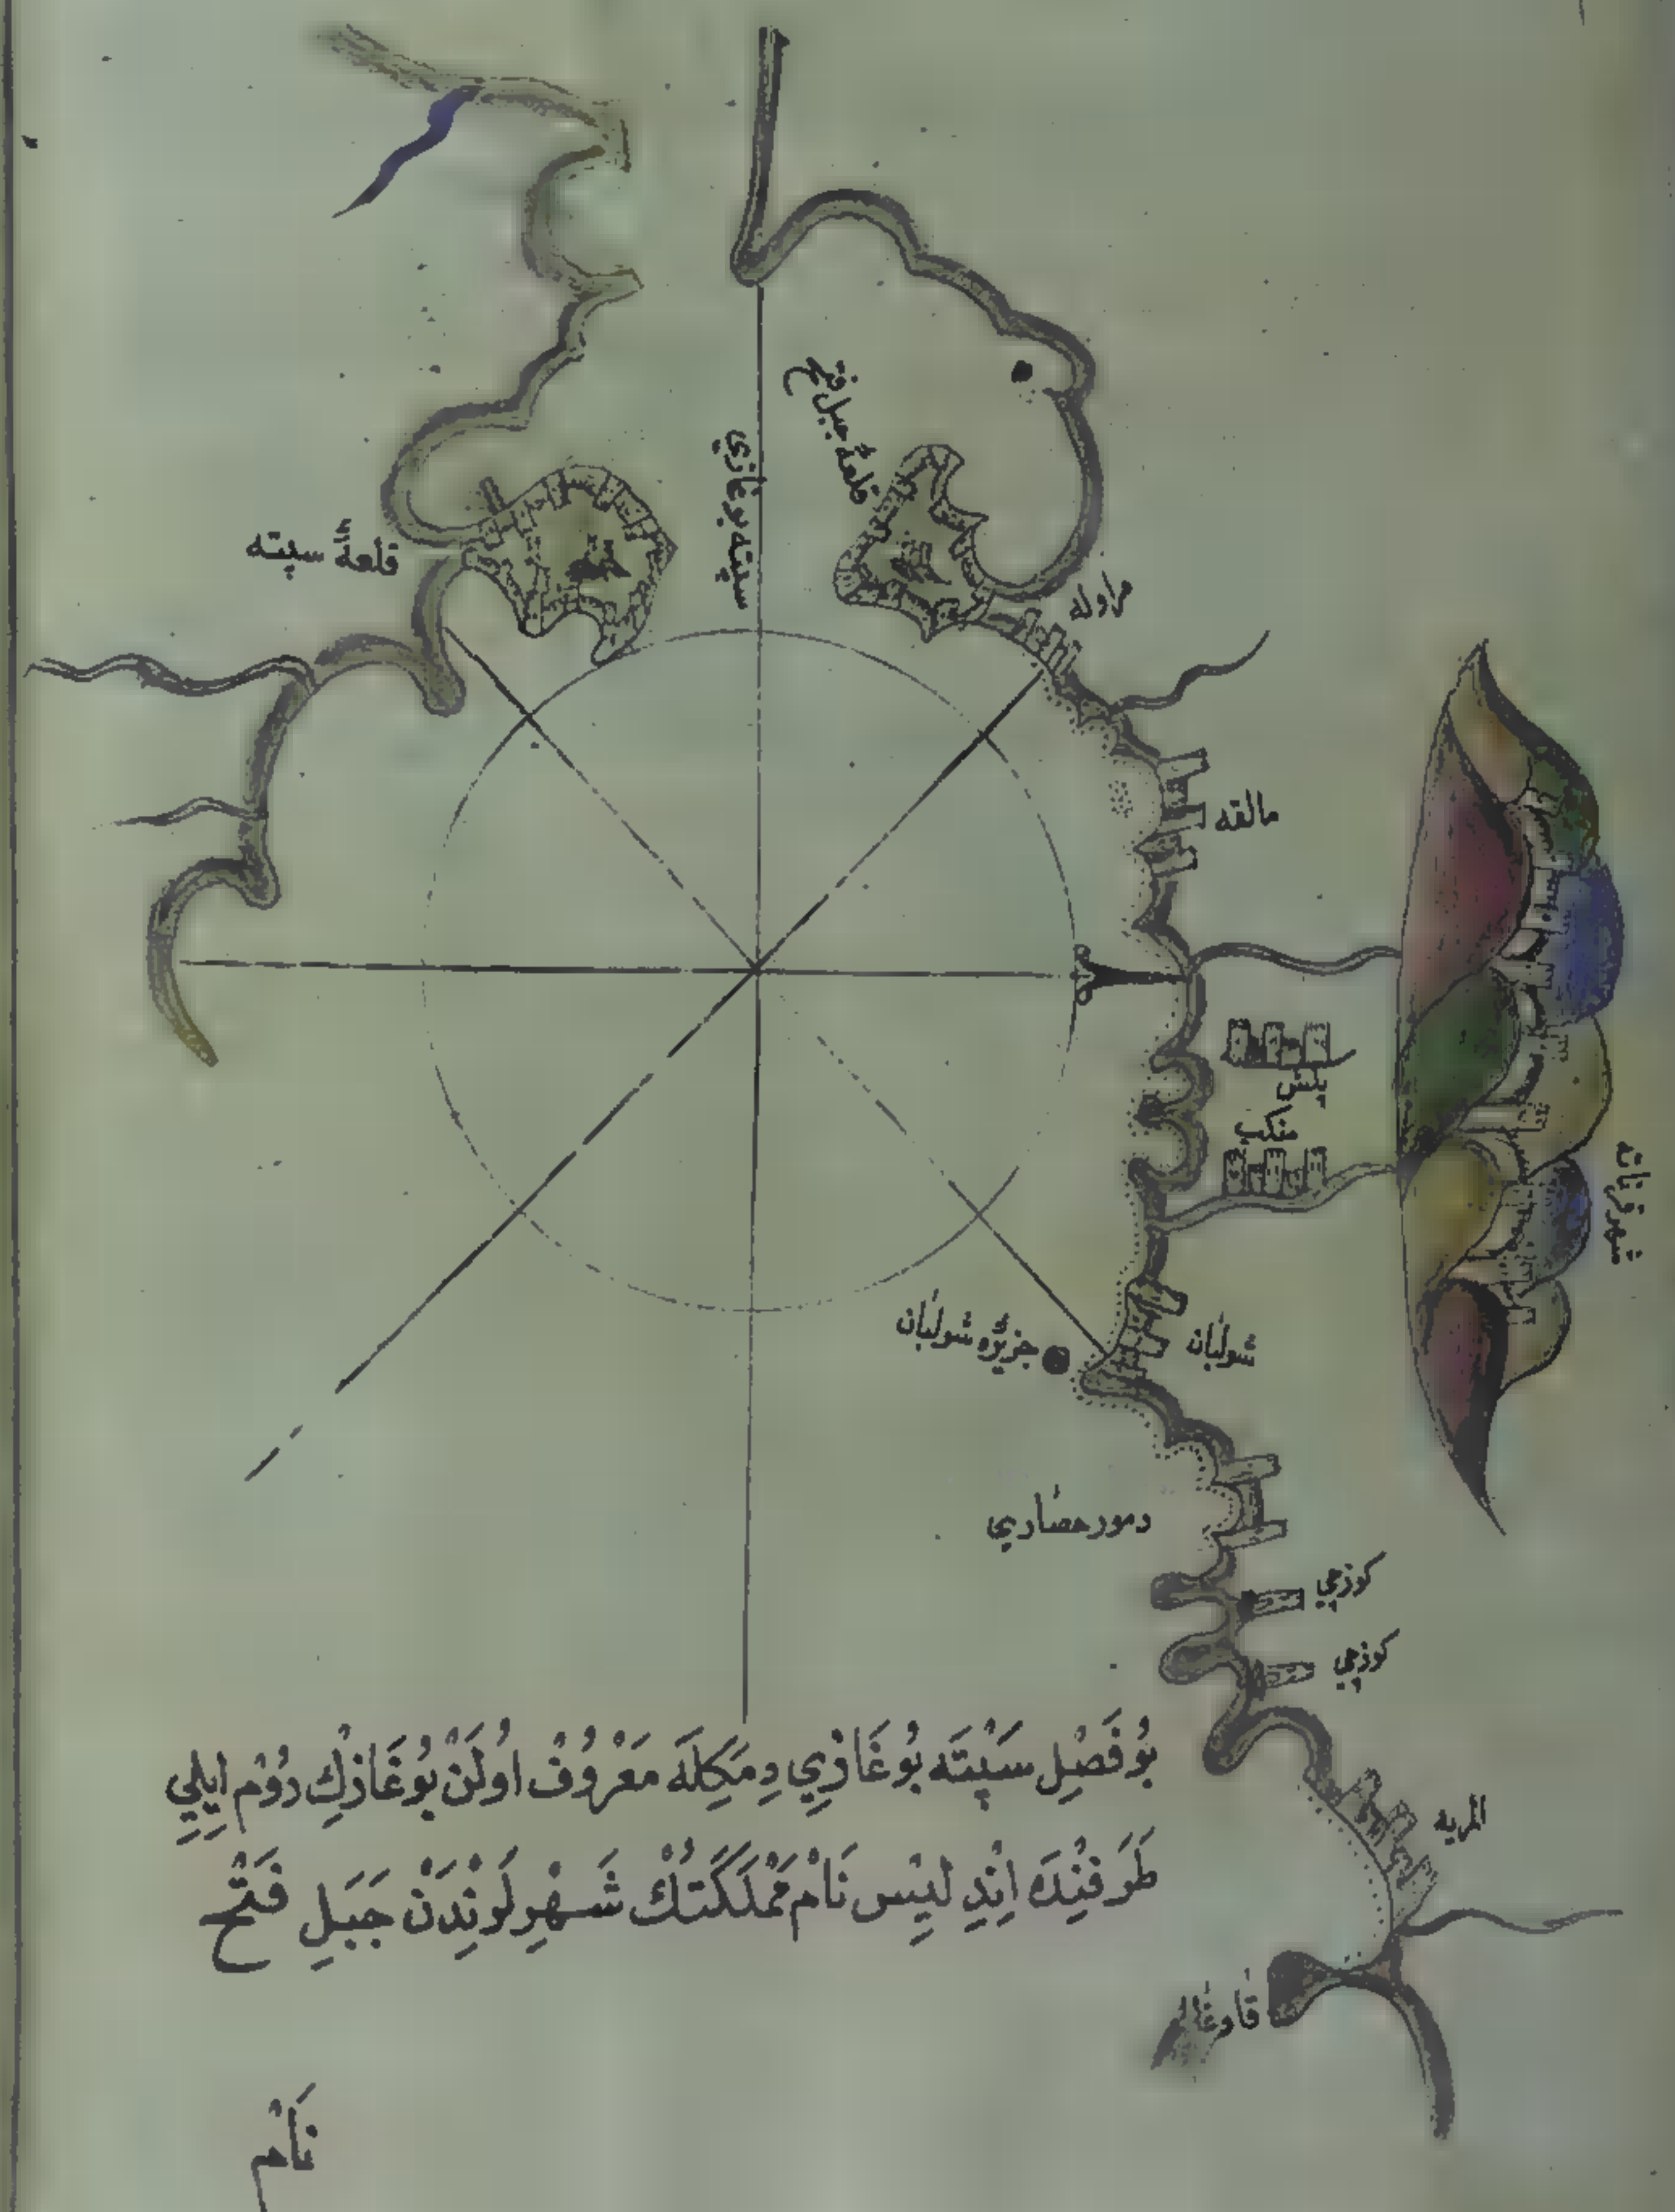 قلعهٔ جبل فتح
سپته بوغازي
قلعهٔ سپته
مالقه
بلش
منكب
شهر غرناته
شولبانيه
جزيرهٔ شولبانيه
دمور حصاري
كوزجي
كوزجي
المريه
بُو فَصْلِ سَپْتَه بُوغَازِي دِمَكِلَه مَعْرُوفْ اُولَنْ بُوغَازِكِ رُومْ اِيلِي
طَرَفِنْدَه اَنْدِلِيسْ نَامْ مَمْلَكَتُكْ شَهْرِلَرِنْدَنْ جَبَلِ فَتْحْ
نَامْ